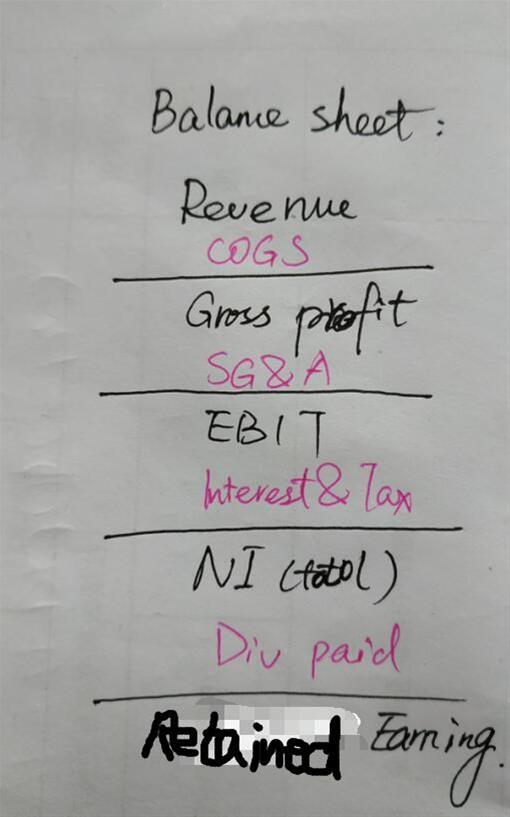 Balance sheet:
Revenue
COGS
Gross profit
SG&A
EBIT
Interest & Tax
NI (total)
Div paid
Retained Earning.